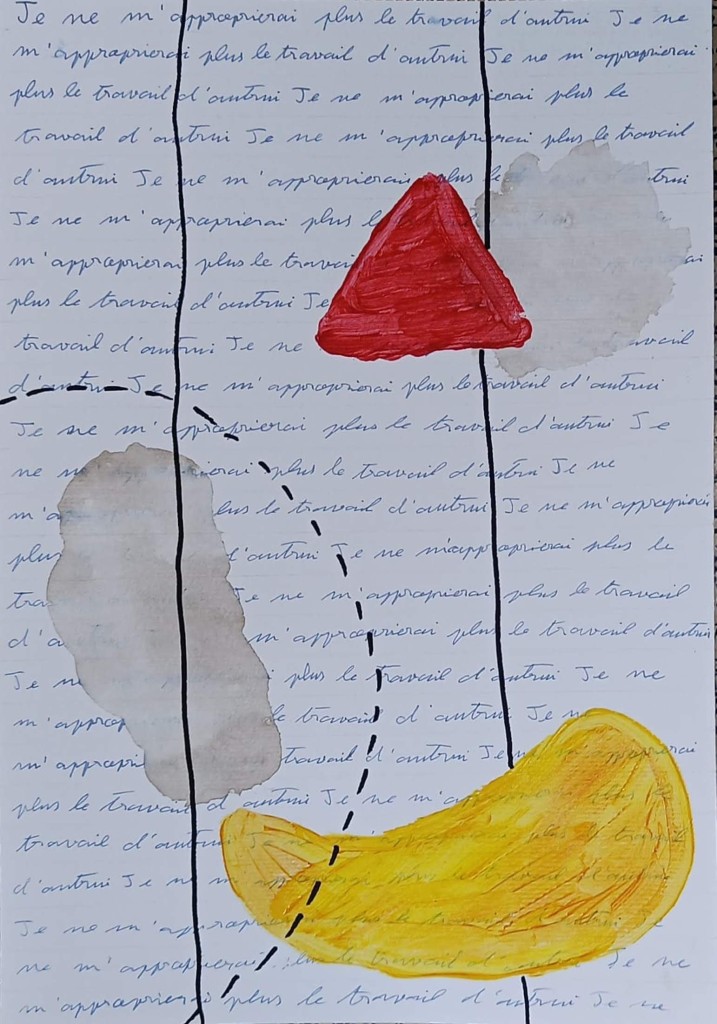 Je ne m'approprierai plus le travail d'autrui Je ne
m'approprierai plus le travail d'autrui Je ne m'approprierai
plus le travail d'autrui Je ne m'approprierai plus le
travail d'autrui Je ne m'approprierai plus le travail
d'autrui Je ne m'approprierai plus
Je ne m'approprierai plus
m'approprierai plus le
plus le travail d'autrui Je
travail d'autrui Je ne
d'autrui Je ne m'approprierai plus le travail d'autrui
Je ne m'approprierai plus le travail d'autrui Je
ne plus le travail d'autrui Je ne
le travail d'autrui Je ne m'approprierai
d'autrui Je ne m'approprierai plus le
Je ne m'approprierai plus le travail
m'approprierai plus le travail d'autrui
Je ne plus le travail d'autrui Je ne
le travail d'autrui Je ne
travail d'autrui Je ne m'approprierai
plus le travail d'autrui Je ne m'approprierai plus le
travail d'autrui Je ne m'approprierai plus le travail
d'autrui Je ne m'approprierai plus le travail d'autrui
Je ne m'approprierai plus le travail d'autrui Je
ne m'approprierai plus le travail d'autrui Je ne
m'approprierai plus le travail d'autrui Je ne